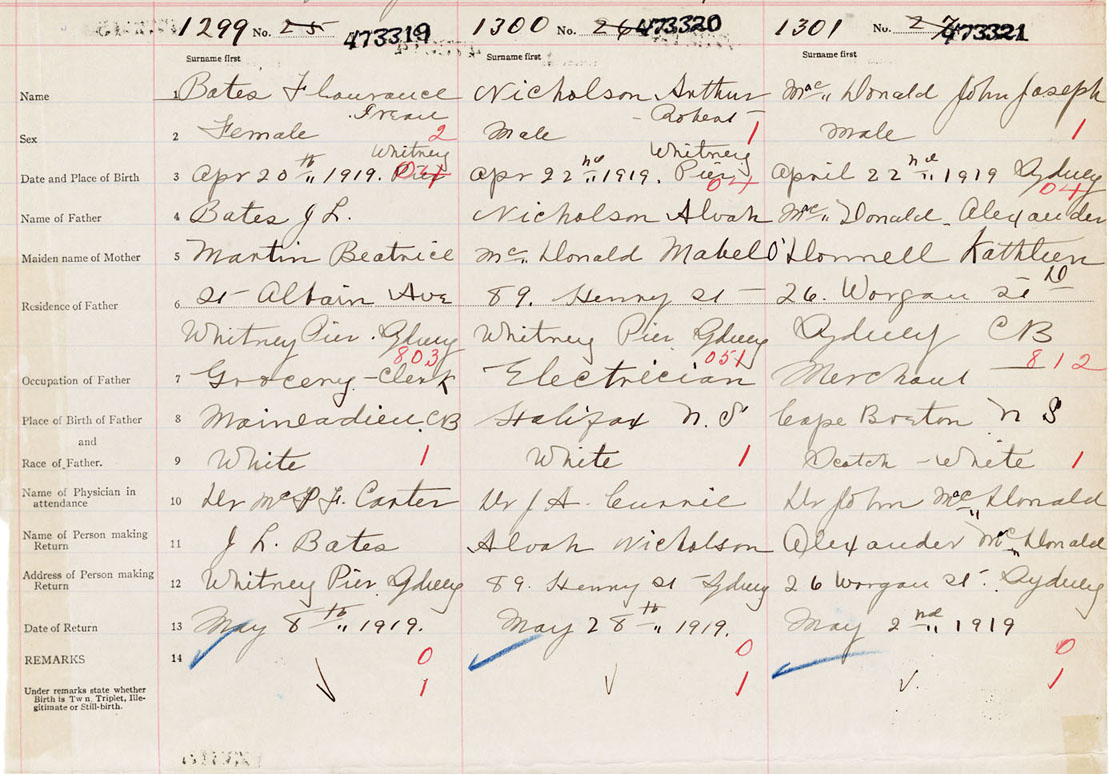 1299 No. 25 473319 1300 No. 26 473320 1301 No. 27 473321
Surname first Surname first Surname first
Name 1 Bates Flourance Nicholson Arthur Mac Donald John Joseph
Irean Robert
Sex 2 Female 2 Male 1 Male 1
Whitney Whitney
Date and Place of Birth 3 Apr 20th 1919. Pier 04 Apr 22nd 1919. Pier 04 April 22nd 1919 Sydney 04
Name of Father 4 Bates J L. Nicholson Alvah Mc Donald Alexander
Maiden name of Mother 5 Martin Beatrice Mc Donald Mabel O'Donnell Kathleen
Residence of Father 6 St Albain Ave 89. Henry St 26. Worgan St
Whitney Pier. Sydney Whitney Pier Sydney Sydney CB
803 051 812
Occupation of Father 7 Grocery-Clerk Electrician Merchant
Place of Birth of Father 8 Mainadieu, CB Halifax N.S Cape Breton N S
and
Race of Father. 9 White 1 White 1 Scotch - White 1
Name of Physician in
attendance 10 Dr Carter Dr J A. Currie Dr John Mac Donald
Name of Person making
Return 11 J L. Bates Alvah Nicholson Alexander Mc Donald
Address of Person making
Return 12 Whitney Pier Sydney 89. Henry St Sydney 26 Worgan St. Sydney
Date of Return 13 May 8th 1919. May 28th 1919. May 2nd 1919
REMARKS 14 0 0 0
Under remarks state whether
Birth is Twin, Triplet, Ille-
gitimate or Still-birth. 1 1 1